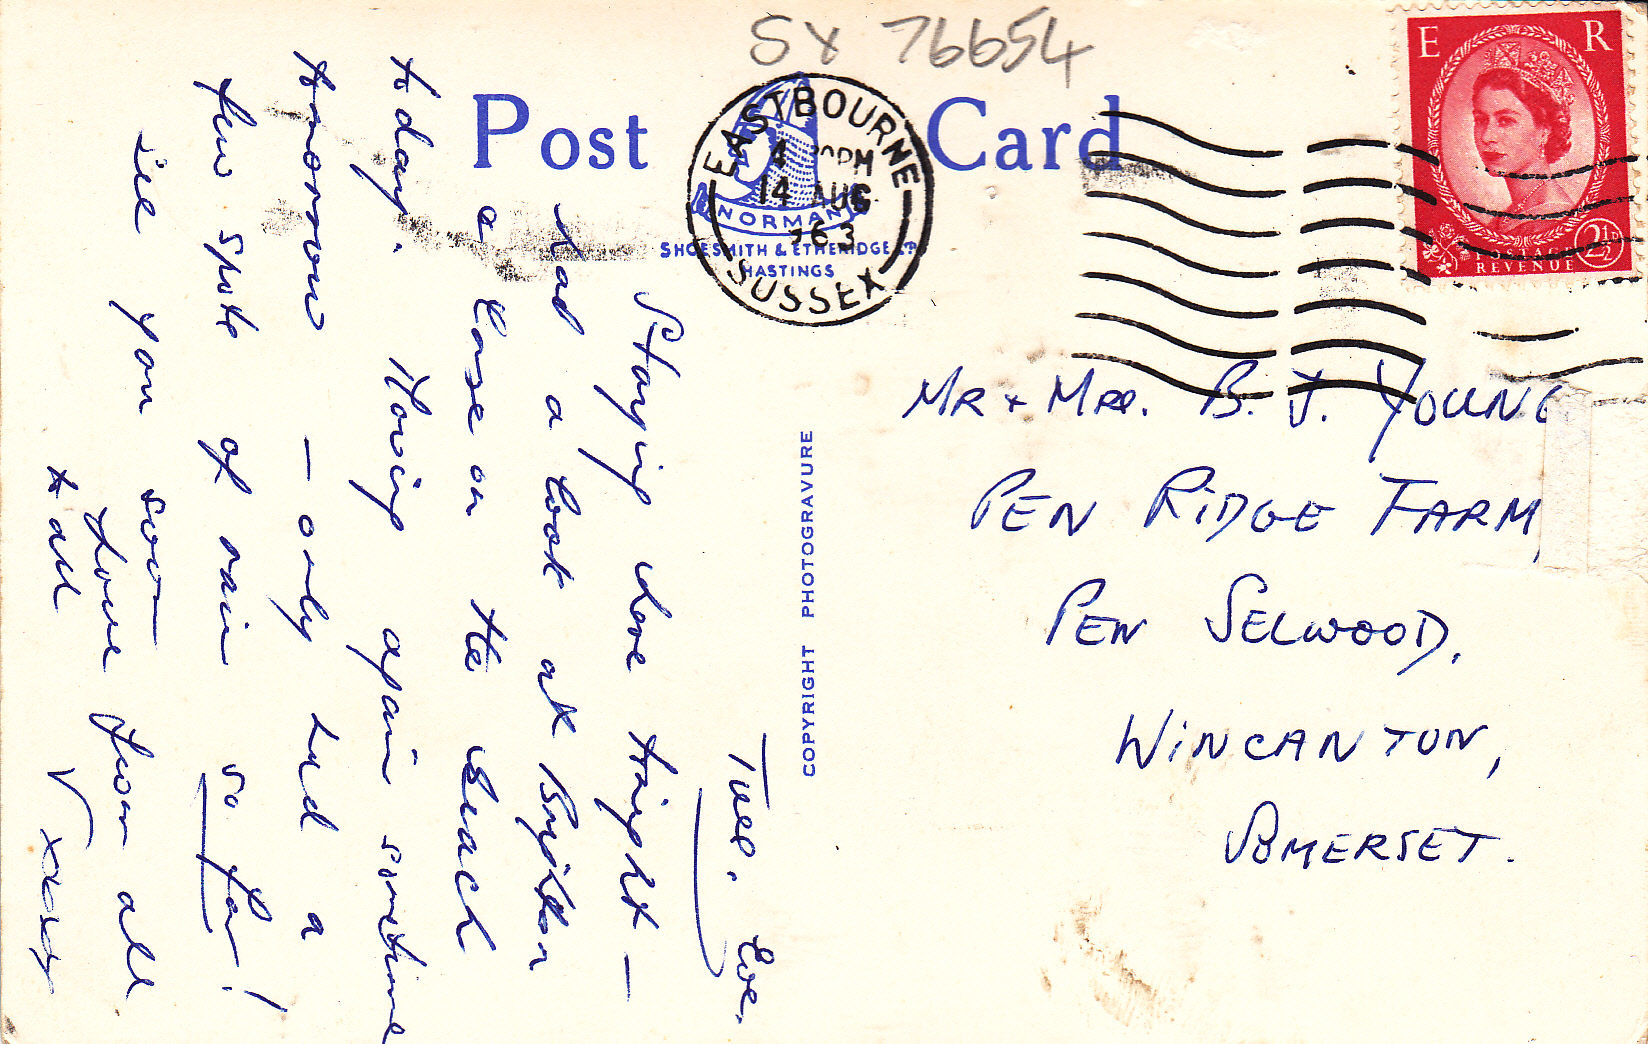 SX 76654
Post Card
EASTBOURNE
4 PM
14 AUG
1963
SUSSEX
NORMAN
SHOESMITH & ETHERIDGE LTD
HASTINGS
E R
REVENUE
2½D
COPYRIGHT PHOTOGRAVURE
Tues. Eve.
Staying here tonight —
Had a look at Brighton
a laze on the Beach
today. Moving again sometime
tomorrow — only had a
few spots of rain so far!
See you soon
Love from all
to all
MR + MRS. B. J. YOUNG
PEN RIDGE FARM,
PEN SELWOOD,
WINCANTON,
SOMERSET.